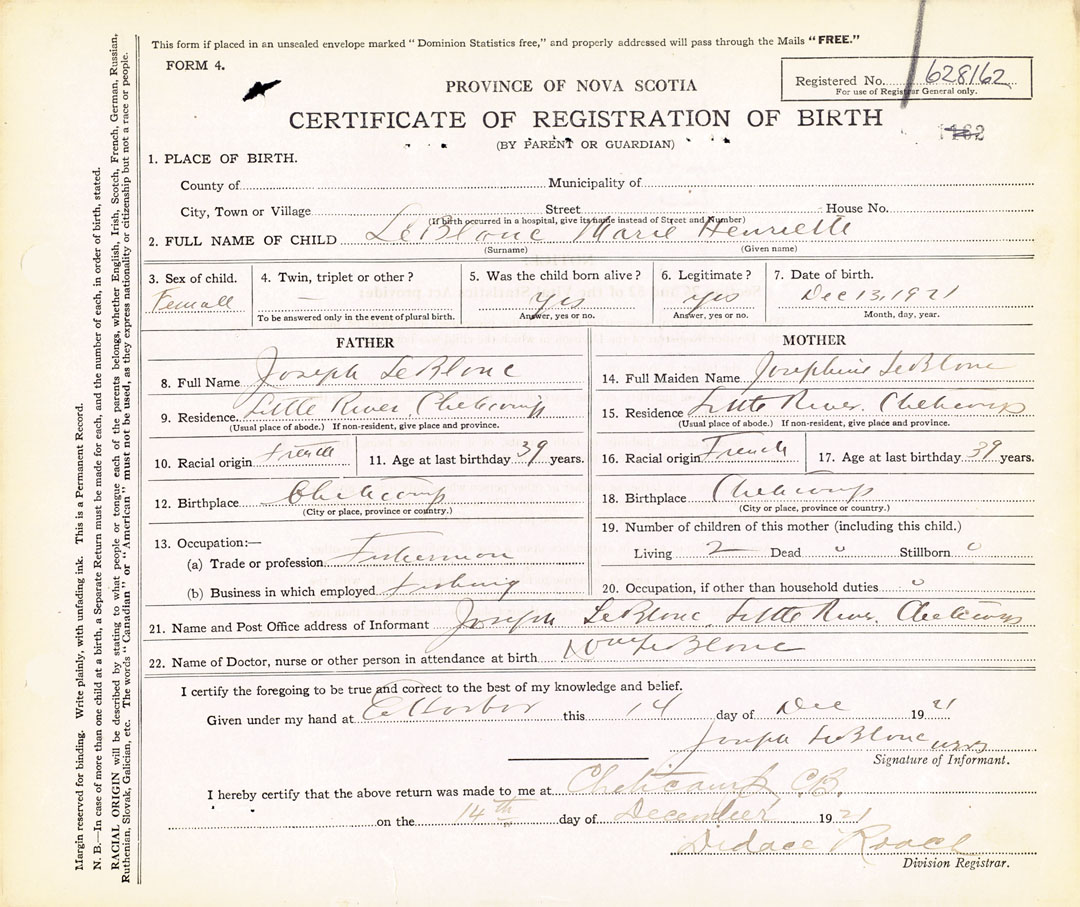 This form if placed in an unsealed envelope marked "Dominion Statistics free," and properly addressed will pass through the Mails "FREE."
FORM 4.
PROVINCE OF NOVA SCOTIA
Registered No. 628162
For use of Registrar General only.
CERTIFICATE OF REGISTRATION OF BIRTH
(BY PARENT OR GUARDIAN)
1. PLACE OF BIRTH.
County of Municipality of
City, Town or Village Street House No.
(If birth occurred in a hospital, give its name instead of Street and Number)
2. FULL NAME OF CHILD LeBlanc Marie Henriette
(Surname) (Given name)
3. Sex of child. 4. Twin, triplet or other? 5. Was the child born alive? 6. Legitimate? 7. Date of birth.
Femall — Yes Yes Dec 13, 1921
To be answered only in the event of plural birth. Answer, yes or no. Answer, yes or no. Month, day, year.
FATHER
8. Full Name Joseph LeBlanc
9. Residence. Little River, Cheticamp
(Usual place of abode.) If non-resident, give place and province.
10. Racial origin French 11. Age at last birthday 39 years.
12. Birthplace Cheticamp
(City or place, province or country.)
13. Occupation:—
(a) Trade or profession Fisherman
(b) Business in which employed Fishing
MOTHER
14. Full Maiden Name Josephine LeBlanc
15. Residence Little River. Cheticamp
(Usual place of abode.) If non-resident, give place and province.
16. Racial origin French 17. Age at last birthday 39 years.
18. Birthplace Cheticamp
(City or place, province or country.)
19. Number of children of this mother (including this child.)
Living 2 Dead Stillborn
20. Occupation, if other than household duties
21. Name and Post Office address of Informant Joseph LeBlanc, Little River, Cheticamp
22. Name of Doctor, nurse or other person in attendance at birth LeBlanc
I certify the foregoing to be true and correct to the best of my knowledge and belief.
Given under my hand at E Harbor this 14 day of Dec 1921
Joseph LeBlanc
Signature of Informant.
I hereby certify that the above return was made to me at Cheticamp, C.B.
on the 14th day of December 1921
Didace Roach
Division Registrar.
Margin reserved for binding. Write plainly, with unfading ink. This is a Permanent Record.
N. B.—In case of more than one child at a birth, a Separate Return must be made for each, and the number of each, in order of birth, stated.
RACIAL ORIGIN will be described by stating to what people or tongue each of the parents belongs, whether English, Irish, Scotch, French, German, Russian,
Ruthenian, Slovak, Galician, etc. The words "Canadian" or "American" must not be used, as they express nationality or citizenship but not a race or people.